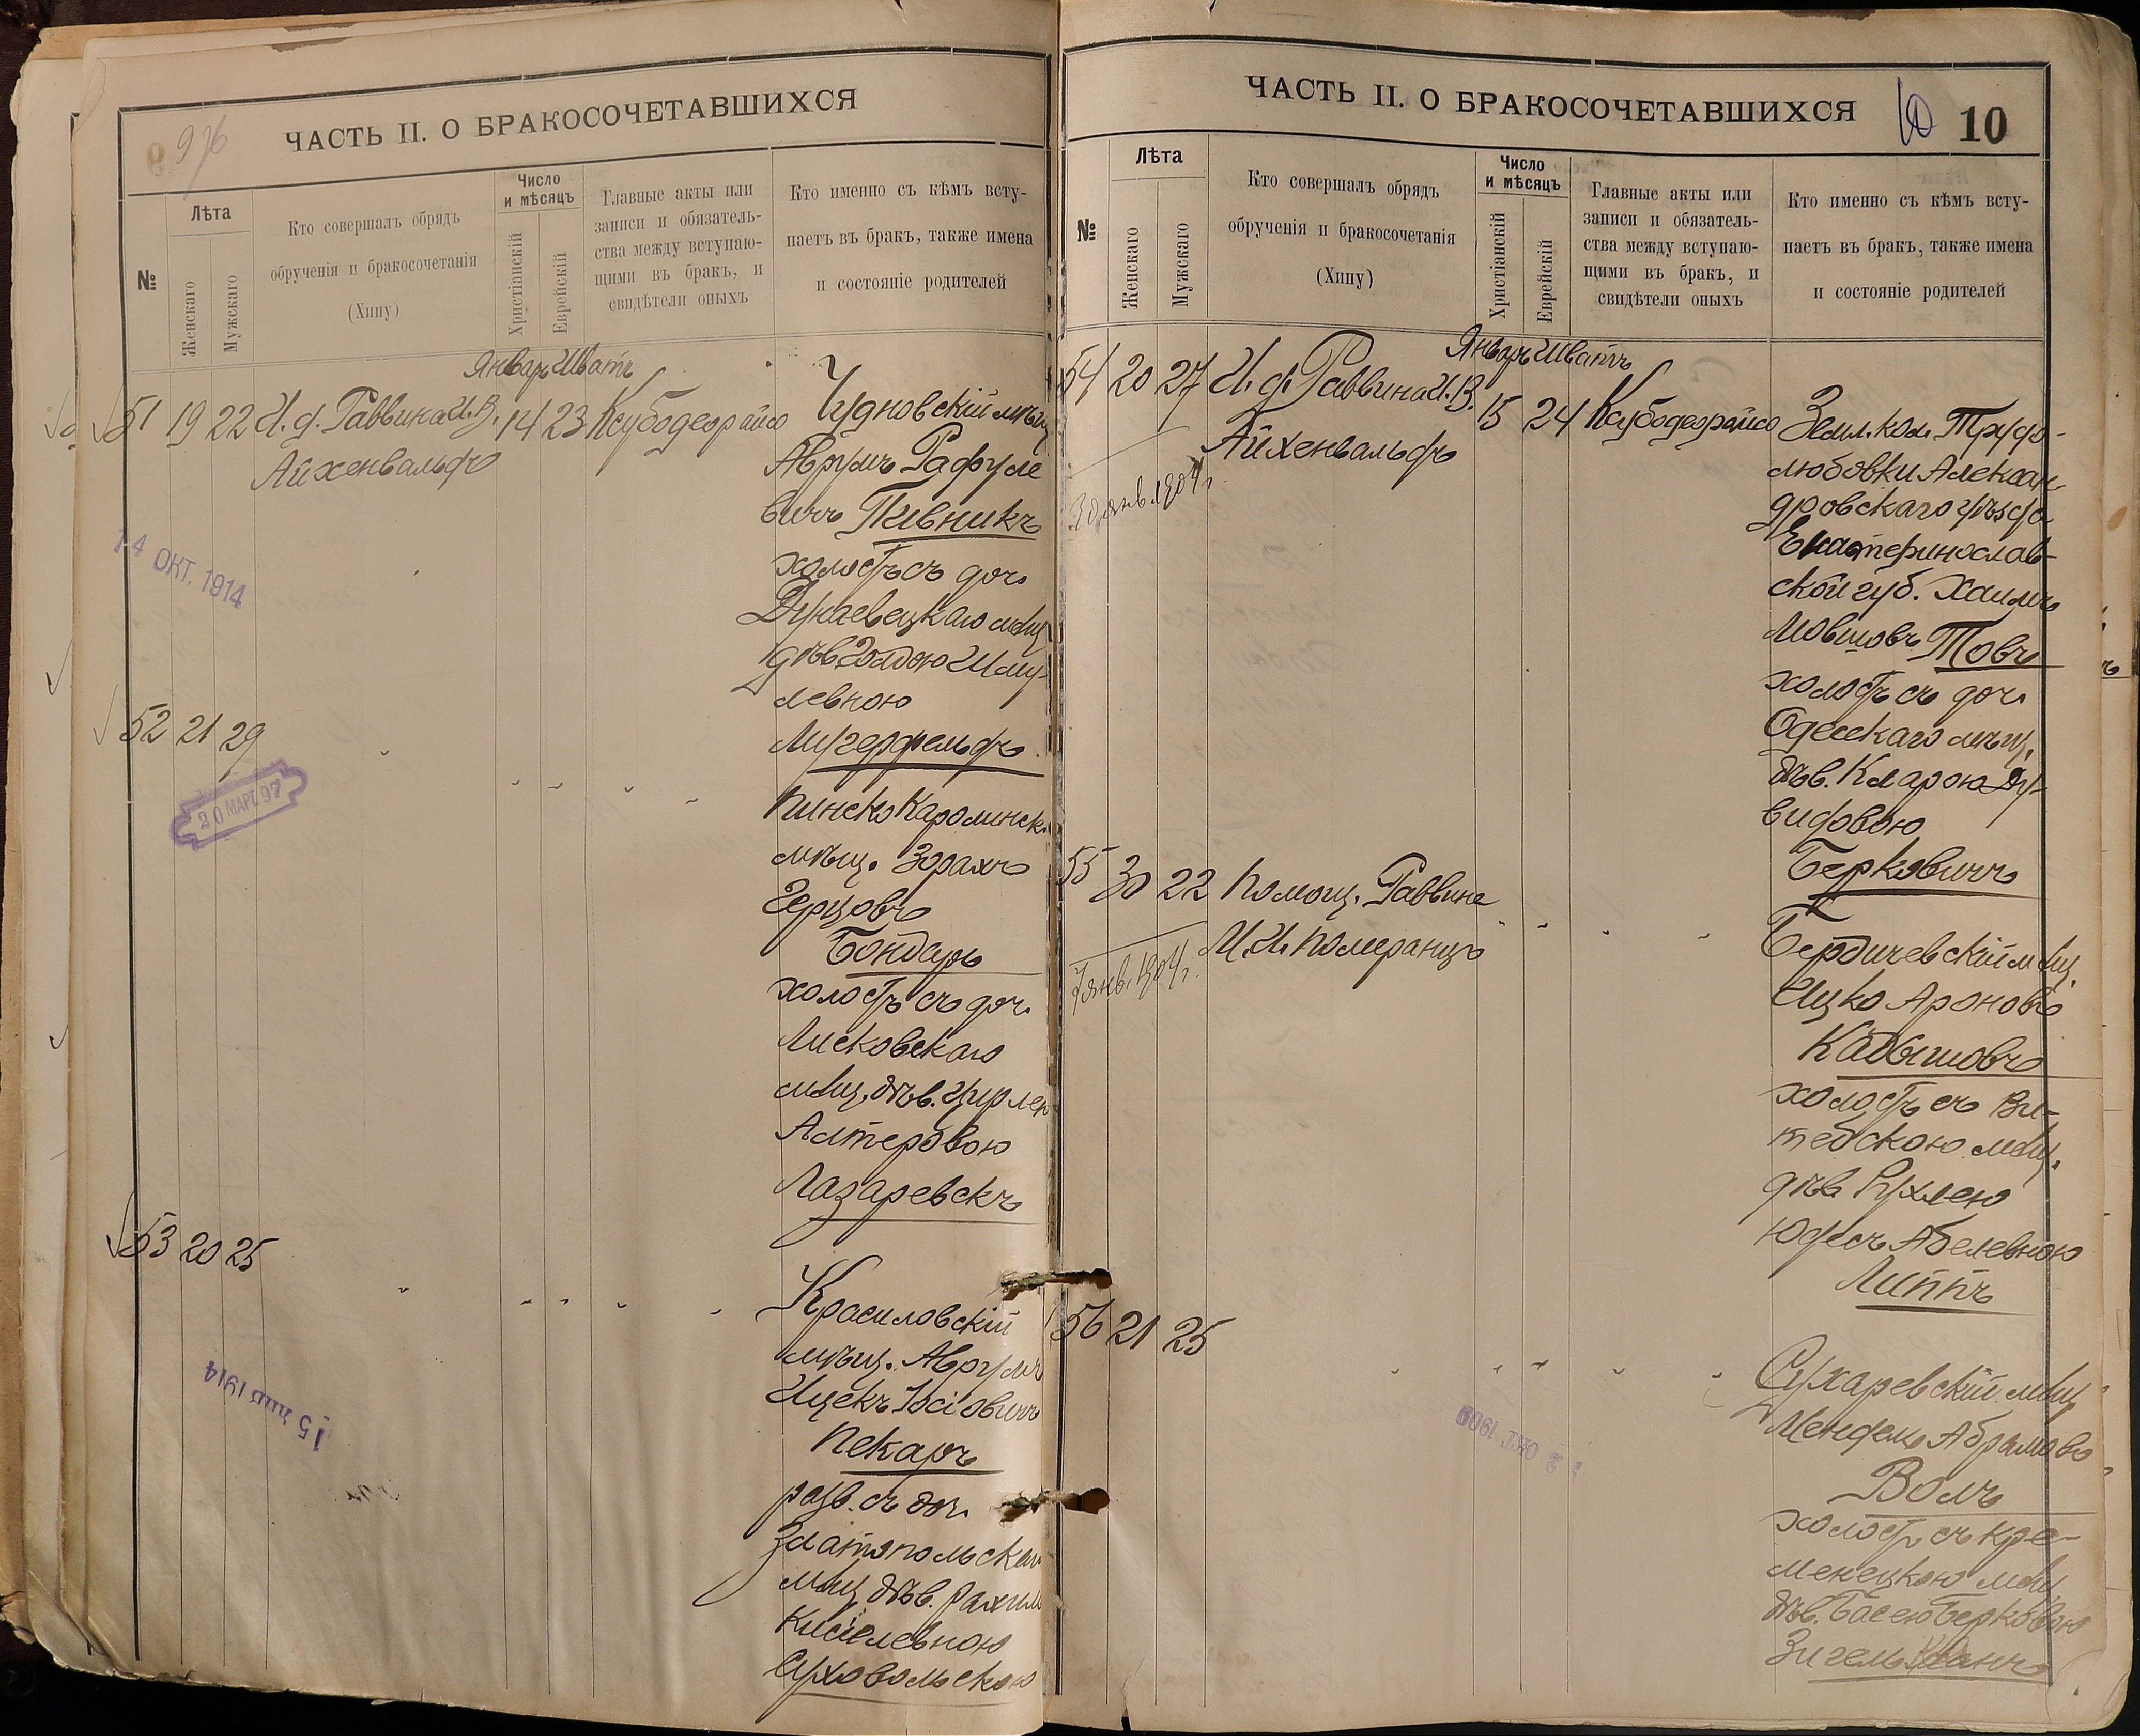 976
ЧАСТЬ II. О БРАКОСОЧЕТАВШИХСЯ
№
Лѣта
Женскаго
Мужскаго
Кто совершалъ обрядъ
обрученія и бракосочетанія
(Хипу)
Число
и мѣсяцъ
Христіанскій
Еврейскій
Главные акты или
записи и обязатель-
ства между вступаю-
щими въ бракъ, и
свидѣтели оныхъ
Кто именно съ кѣмъ всту-
паетъ въ бракъ, также имена
и состояніе родителей
Январь Шватъ
51 19 22 И. д. Раввина И. В. 14 23 Ксубодеорайсо
Айхенвальдъ
Чудновскій мѣщ
Аврумъ Рафуле
вичъ Пивникъ
холостъ съ доч.
Дунаевецкаго мѣщ
дѣв Голдою Шму-
левною
Лугерфельдъ.
14 ОКТ. 1914
52 21 29
20 МАРТ. 97
Пинско Каролинск.
мѣщ. Зорахъ
Герцовъ
Бондарь
холостъ съ доч.
Лисковскаго
мѣщ. дѣв. Цирлею
Алтеровою
Лазаревскъ
53 20 25
Красиловскій
мѣщ. Аврумъ
Ицекъ Іосіовичъ
Пекарь
разв. съ доч.
Златопольскаго
мѣщ. дѣв. Рахилью
Киселевною
Суховольскою
15 1914
ЧАСТЬ II. О БРАКОСОЧЕТАВШИХСЯ
10 10
№
Лѣта
Женскаго
Мужскаго
Кто совершалъ обрядъ
обрученія и бракосочетанія
(Хипу)
Число
и мѣсяцъ
Христіанскій
Еврейскій
Главные акты или
записи и обязатель-
ства между вступаю-
щими въ бракъ, и
свидѣтели оныхъ
Кто именно съ кѣмъ всту-
паетъ въ бракъ, также имена
и состояніе родителей
Январь Шватъ
54 20 27 И. д. Раввина И. В. 15 24 Ксубодеорайсо
Айхенвальдъ
30 янв. 1904 г.
Земл. кол. Трудо-
любовки Алексан
дровскаго уѣзда
Екатеринослав-
ской губ. Хаимъ
Мовшовъ Товъ
холостъ съ доч.
Одесскаго мѣщ.
дѣв. Кларою Ду-
видовою
Берковичъ
55 30 22 Помощ. Раввина
М. И. Померанцъ
7 янв. 1904 г.
Бердичевскій мѣщ.
Ицко Ароновъ
Кадышовъ
холостъ съ Ви-
тебскою мѣщ.
дѣв Рухлею
Юдесъ Абелевною
Липпъ
56 21 25
2 ОКТ 1909
Сухаревскій мѣщ
Мендель Абрамовъ
Волъ
холостъ съ Кре-
менецкою мѣщ
дѣв. Басею Берковою